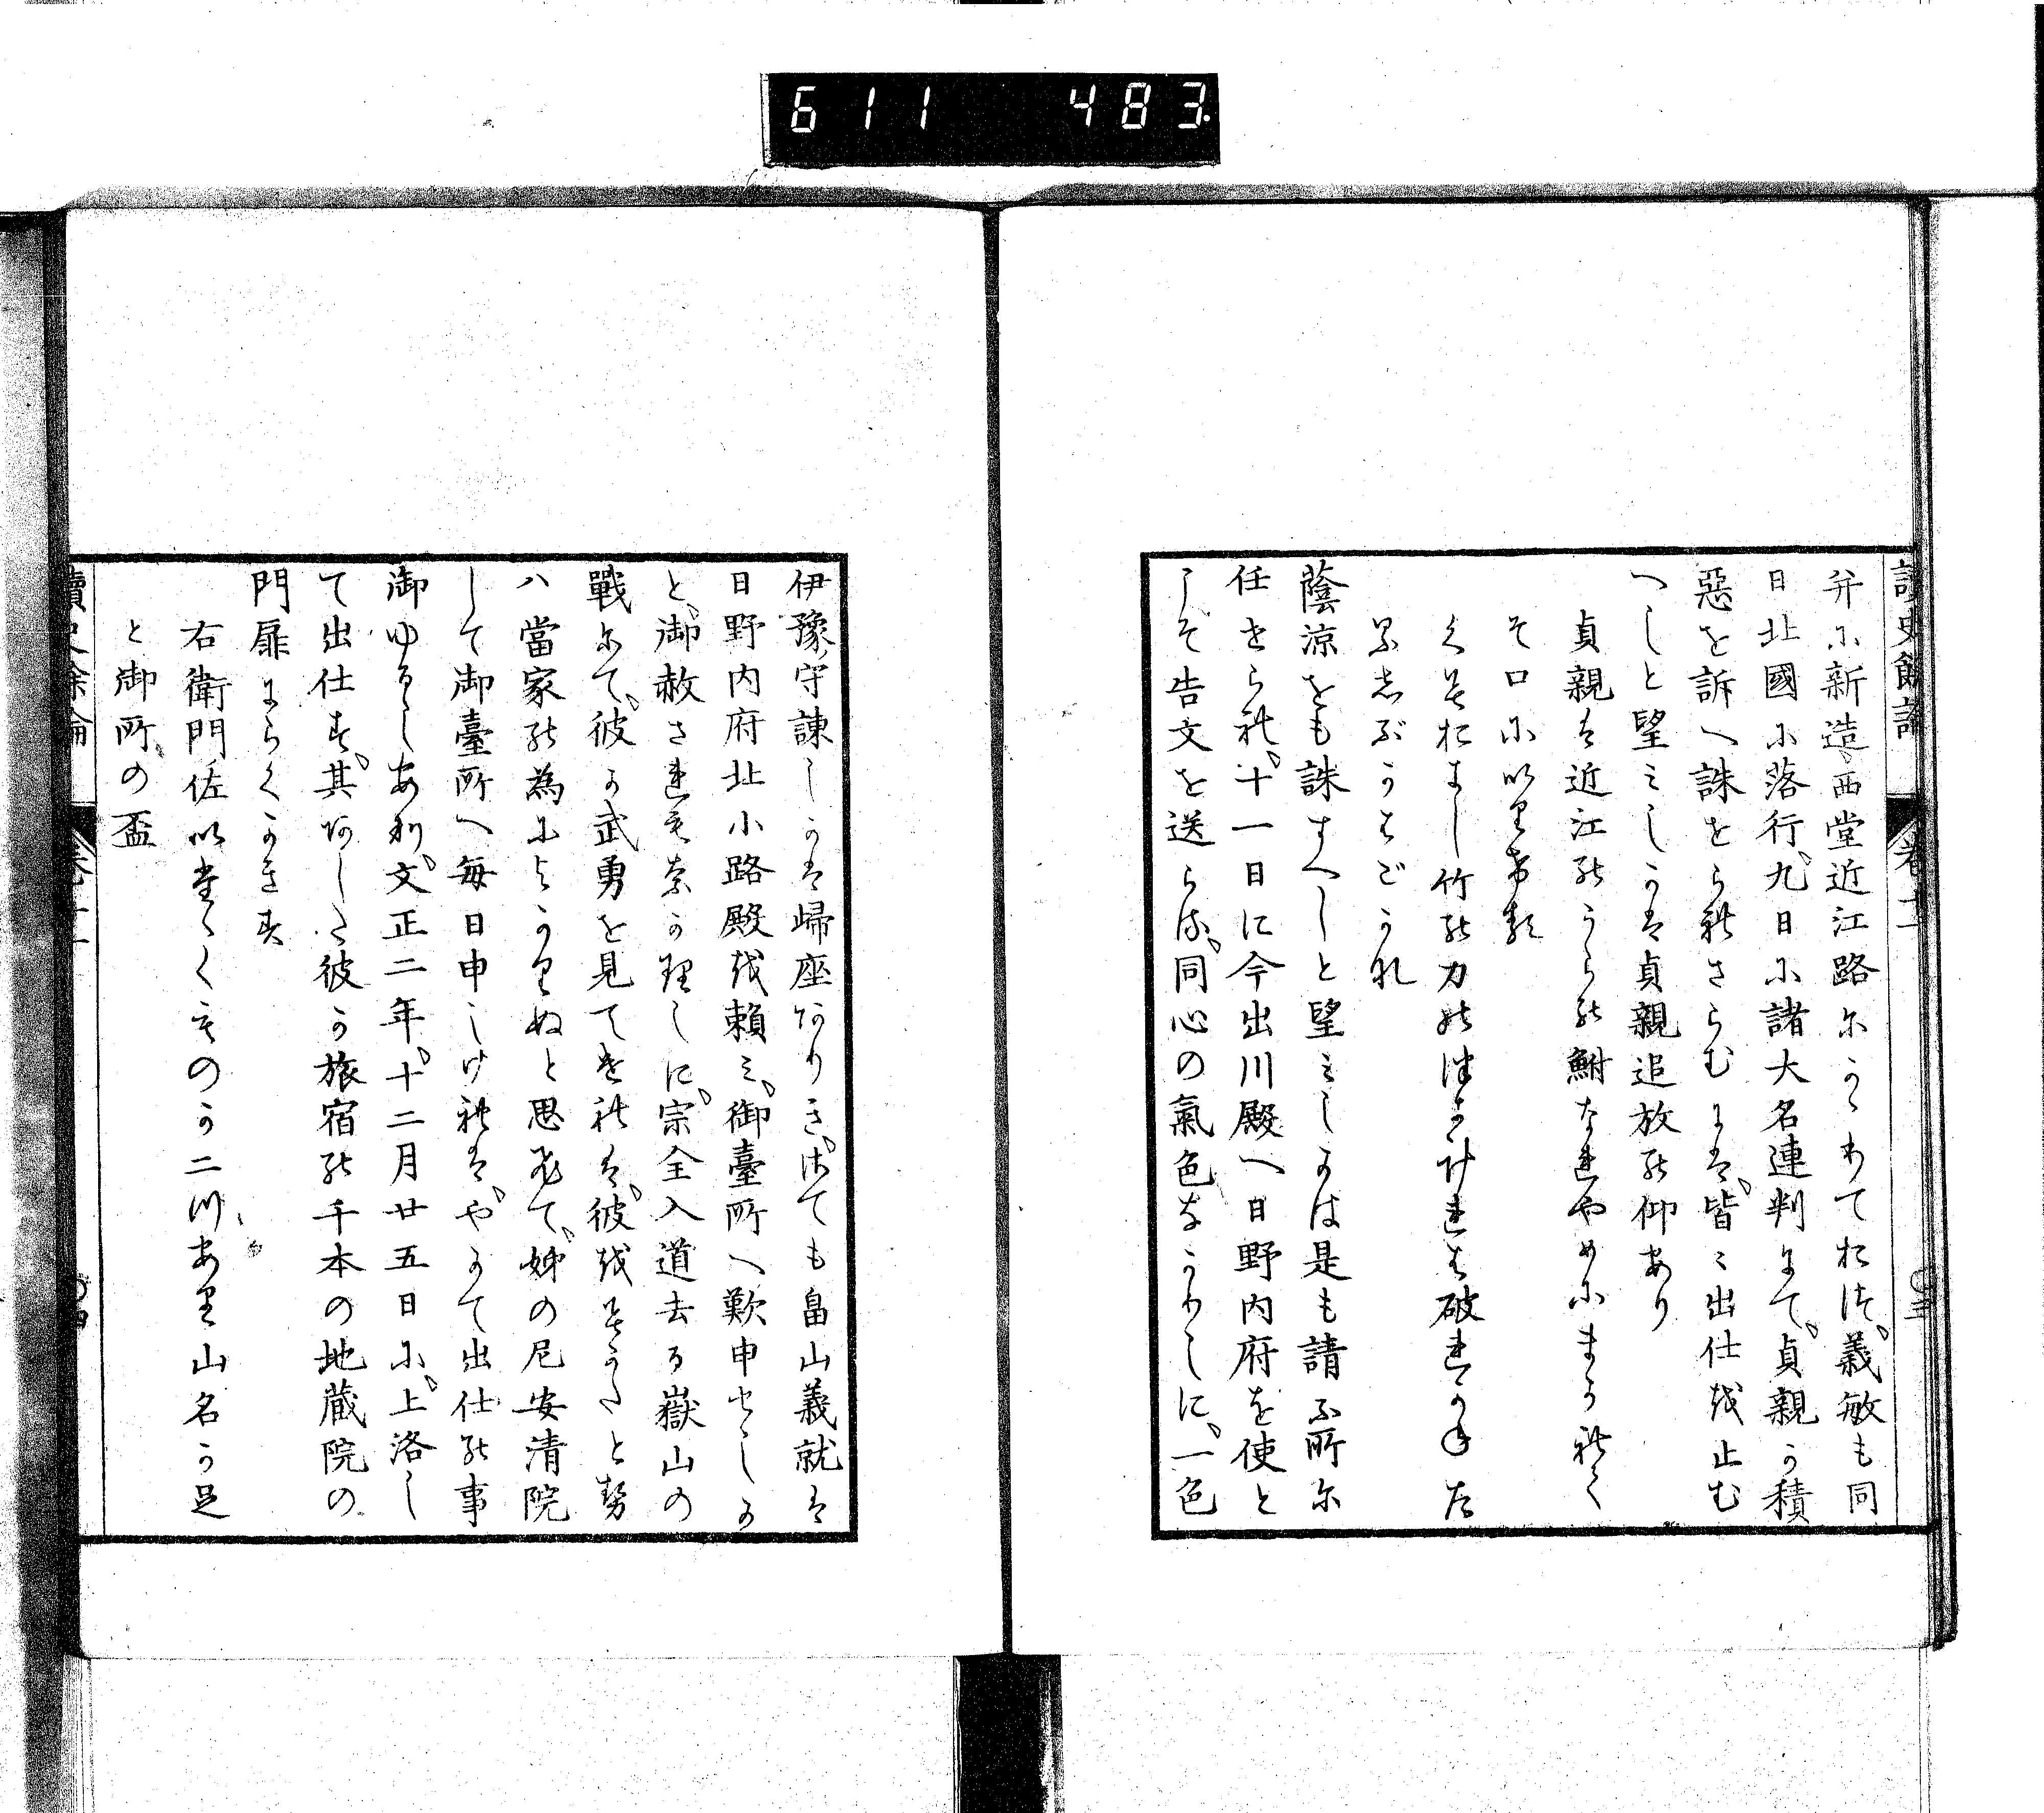 611 483.
讀史餘論 卷十一
弁に新造西堂近江路にかゝわておは、義敏も同
日北國に落行、九日に諸大名連判にて、貞親か積
惡を訴へ誅せられさらむには、皆〻出仕を止む
へしと望みしかは貞親追放の仰あり
貞親は近江のうらの鮒なれやめにまかれて
そ口にいりける
くはおまし竹の力のはなけれは破れかねた
るしぶうちごかな
蔭涼をも誅すへしと望みしかは是も請ふ所に
任せられ、十一日に今出川殿へ日野内府を使と
して告文を送らる、同心の氣色なかりしに、一色
伊豫守諌しかは歸座ありき、さても畠山義就は
日野内府北小路殿を頼み、御臺所へ歎申せしか
と、御赦されもなかりしに、宗全入道去る嶽山の
戰にて、彼か武勇を見てけれは、彼をそうたと努
ハ當家の為によかりぬと思ひて、姊の尼安清院
して御臺所へ毎日申しけれは、やかて出仕の事
御ゆるしあり、文正二年、十二月廿五日に、上洛し
て出仕す、其あした彼か旅宿の千本の地蔵院の
門扉にらくかきす
右衛門佐いたゝくものか二川あり山名か足
と御所の盃
讀史餘論 卷十一